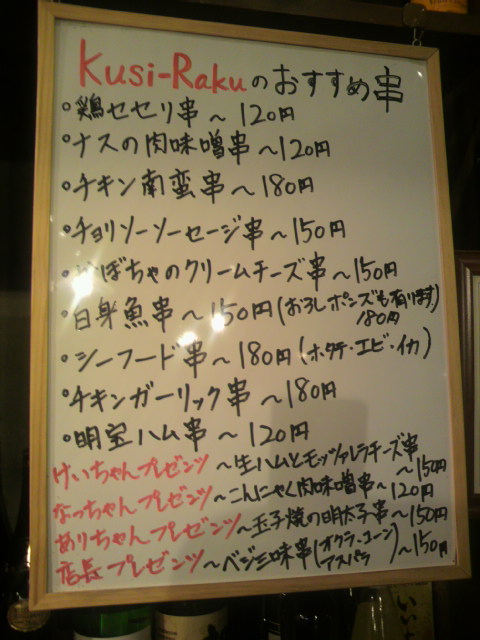 Kusi-Rakuのおすすめ串
・鶏セセリ串~120円
・ナスの肉味噌串~120円
・チキン南蛮串~180円
・チョリソーソーセージ串~150円
・かぼちゃのクリームチーズ串~150円
・白身魚串~150円(おろしポンズも有ります)180円
・シーフード串~180円(ホタテ・エビ・イカ)
・チキンガーリック串~180円
・明宝ハム串~120円
けいちゃんプレゼンツ~生ハムとモッツァレラチーズ串~150円
なっちゃんプレゼンツ~こんにゃく肉味噌串~120円
ありちゃんプレゼンツ~玉子焼の明太子串~150円
店長プレゼンツ~ベジ三味串(オクラ・コーンアスパラ)~150円